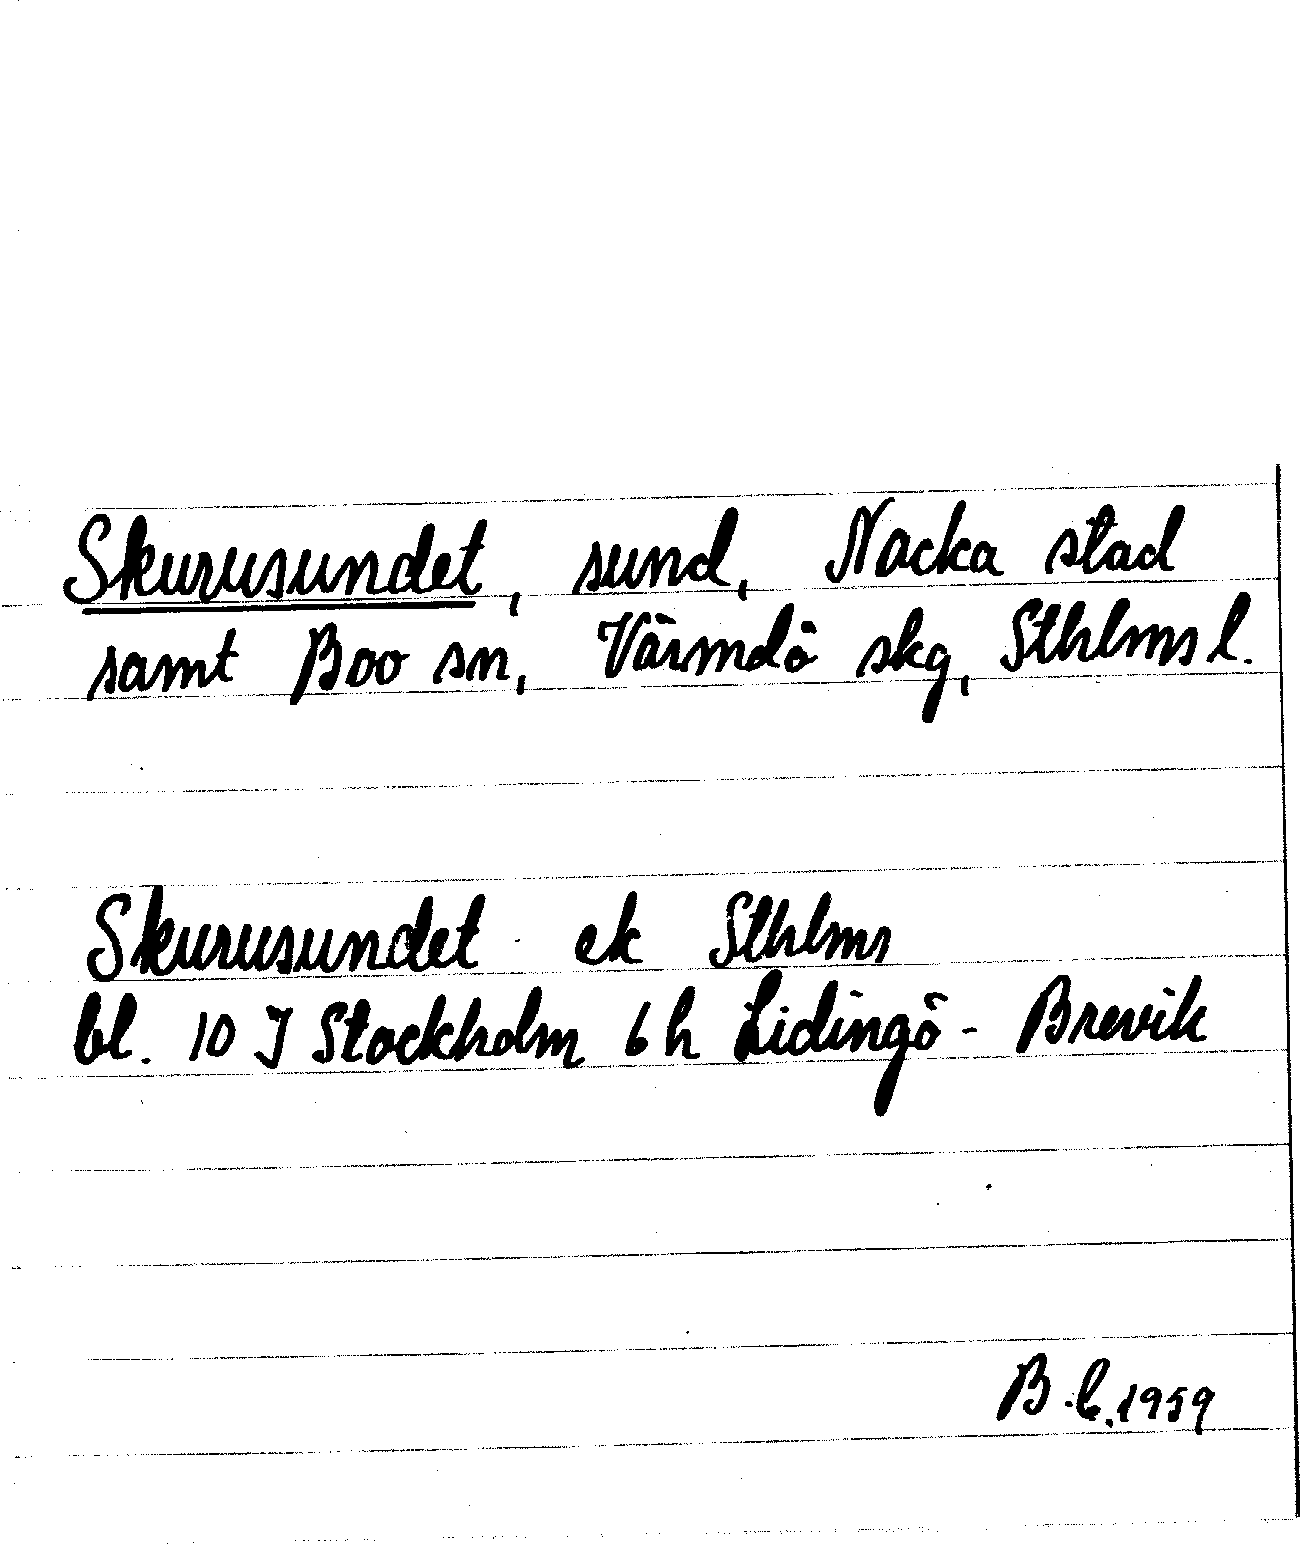 Skurusundet, sund, Nacka stad
samt Boo sn, Värmdö skg, Sthlms l.
Skurusundet ek Sthlms
bl. 10 J Stockholm 6 h Lidingö - Brevik
B.C. 1959